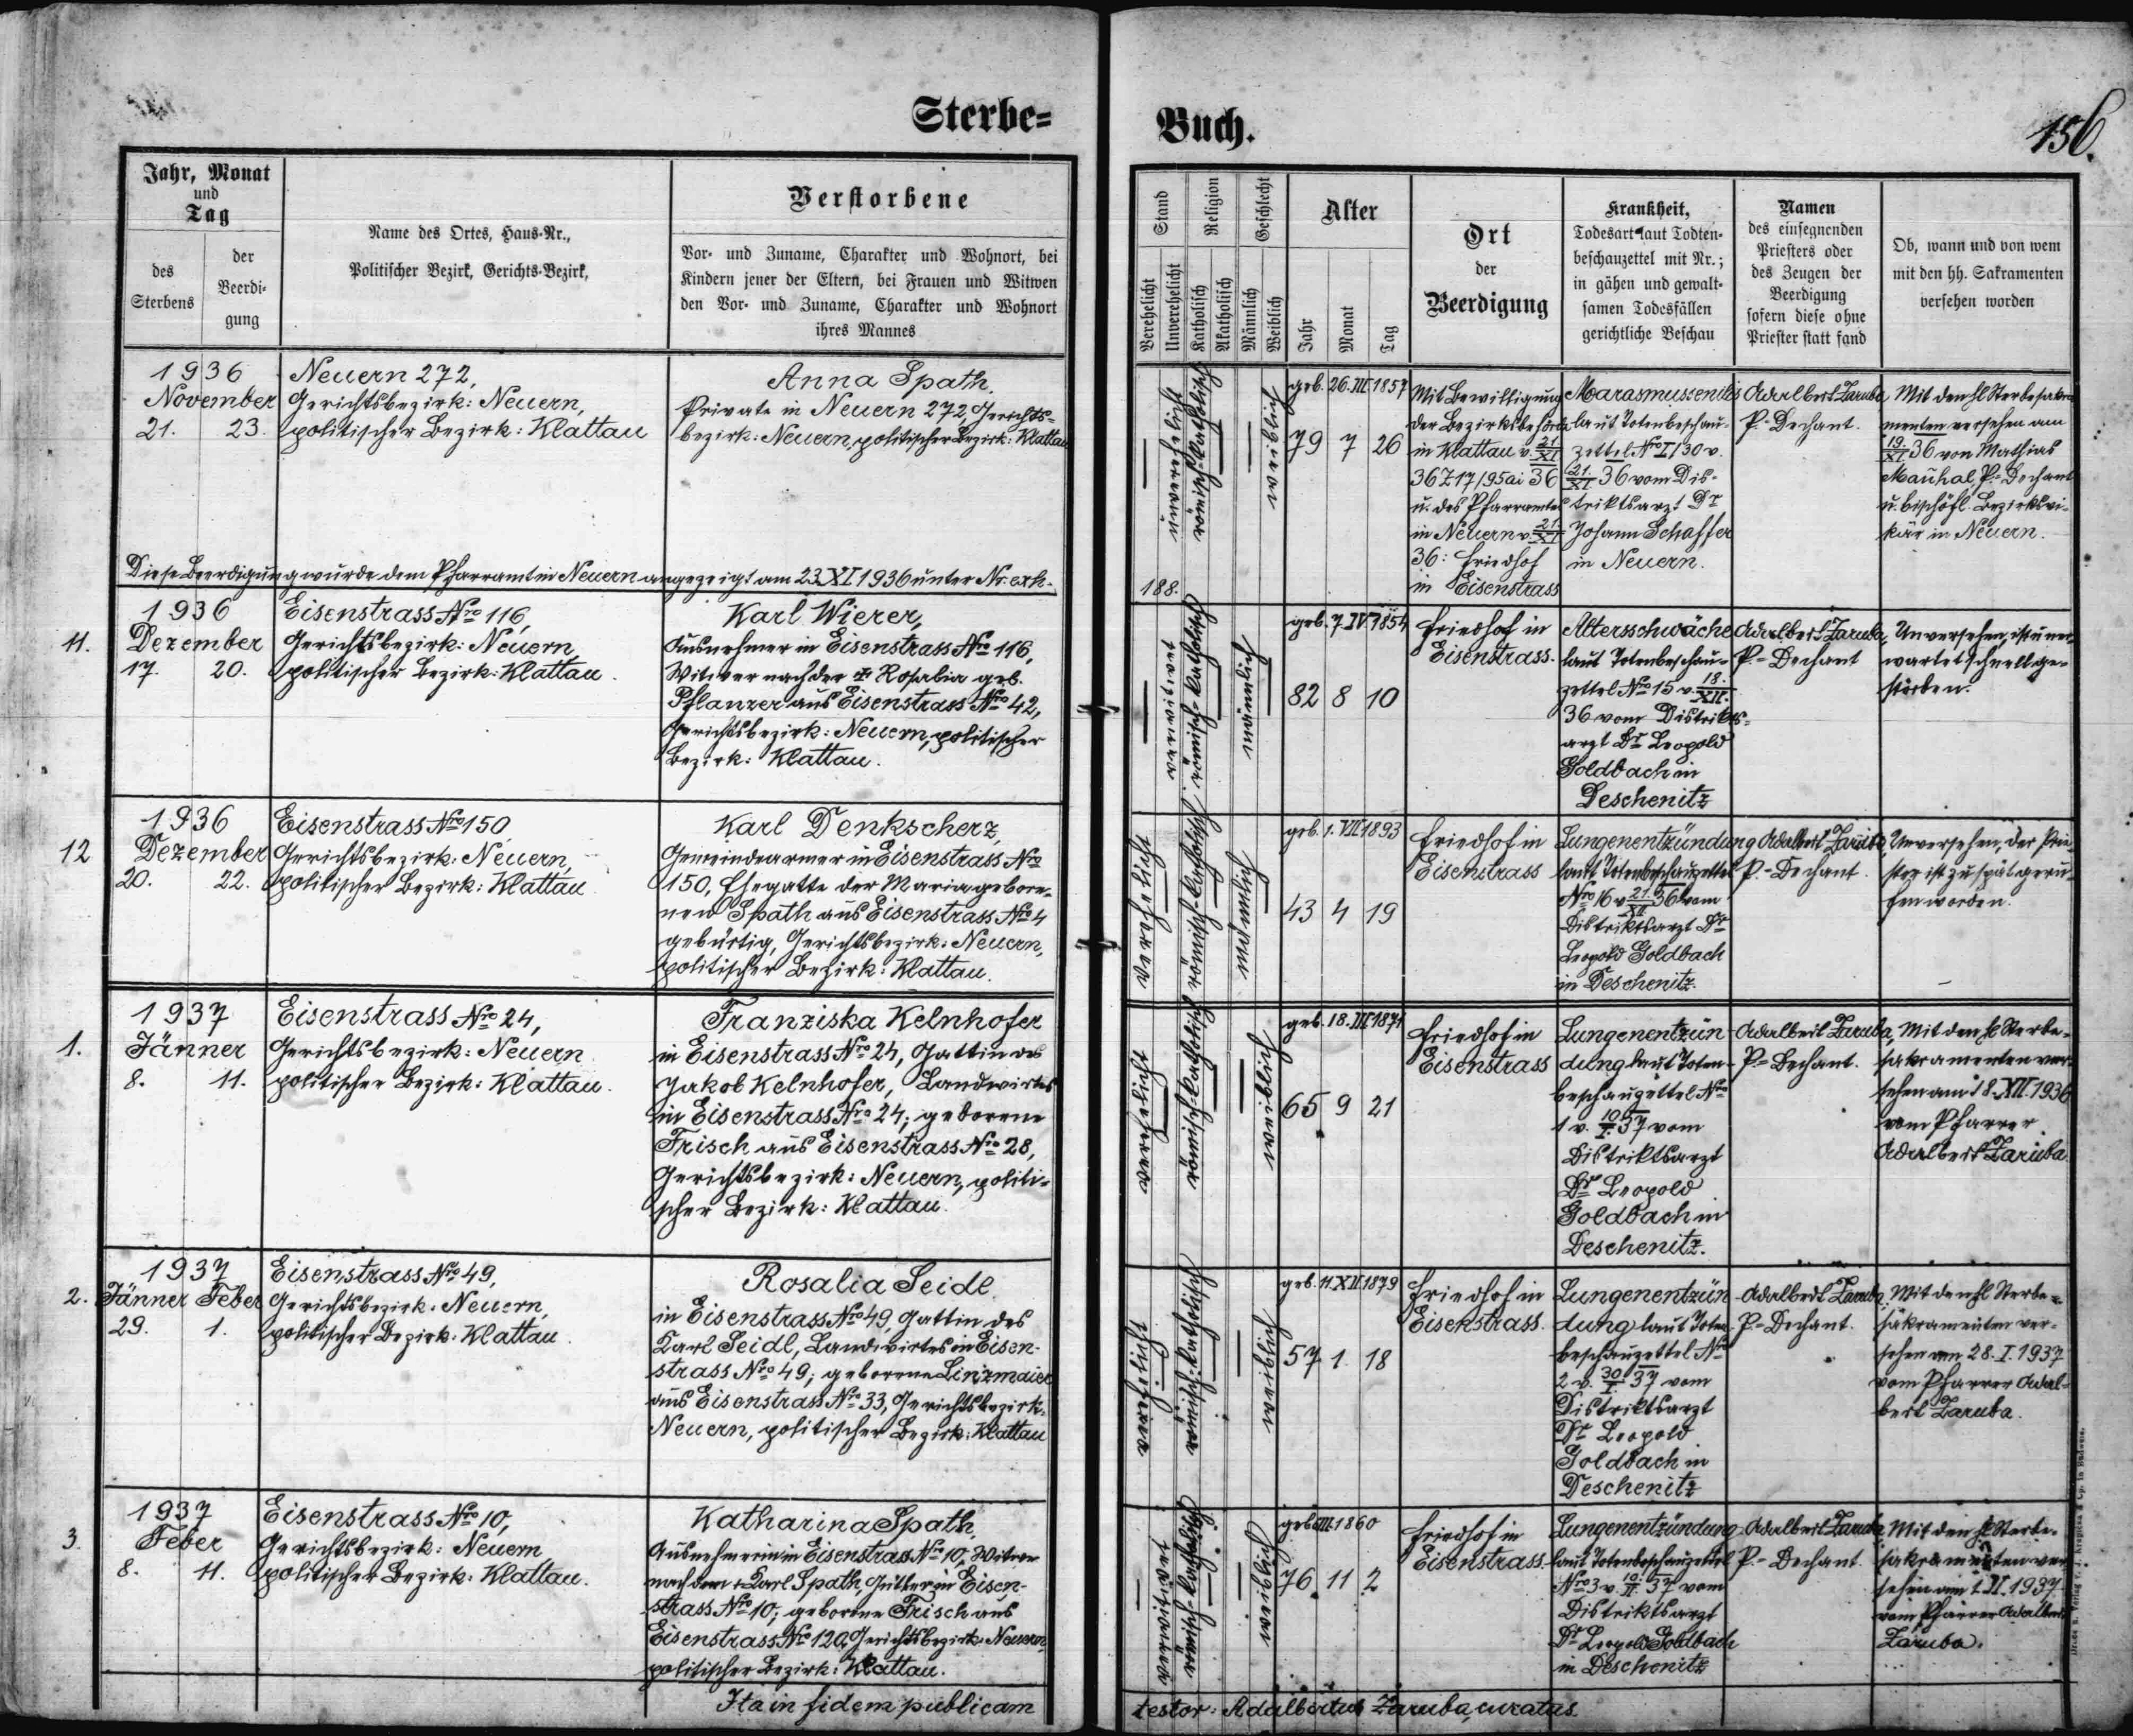 Sterbe=
Buch.
156.
Jahr, Monat
und
Tag
des
Sterbens
der
Beerdi-
gung
Name des Ortes, Haus-Nr.,
Politischer Bezirk, Gerichts-Bezirk,
Verstorbene
Vor- und Zuname, Charakter und Wohnort, bei
Kindern jener der Eltern, bei Frauen und Witwen
den Vor- und Zuname, Charakter und Wohnort
ihres Mannes
Stand
Verehelicht
Unverehelicht
Religion
Katholisch
Akatholisch
Geschlecht
Männlich
Weiblich
Alter
Jahr
Monat
Tag
Ort
der
Beerdigung
Krankheit,
Todesart laut Todten-
beschauzettel mit Nr.;
in gähen und gewalt-
samen Todesfällen
gerichtliche Beschau
Namen
des einsegnenden
Priesters oder
des Zeugen der
Beerdigung
sofern diese ohne
Priester statt fand
Ob, wann und von wem
mit den hh. Sakramenten
versehen worden
1936
November
21. 23.
Neuern 272,
Gerichtsbezirk: Neuern,
politischer Bezirk: Klattau
Anna Spath,
Private in Neuern 272 Gerichts-
bezirk: Neuern, politischer Bezirk: Klattau
unverehelicht
römisch-katholisch
weiblich
geb. 26.III.1857
79 7 26
Mit Bewilligung
der Bezirksbehörde
in Klattau v. 21/XI
36 Z 17/95 ai 36
u. des Pfarramtes
in Neuern v. 21./XI
36: Friedhof
in Eisenstrass
Marasmus senilis
laut Totenbeschau-
zettel Nro I/30 v.
21./XI 36 vom Dis-
triktsarzt Dr
Johann Schaffer
in Neuern.
Adalbert Zaruba,
P.-Dechant.
Mit den hl Sterbesakra-
menten versehen am
19./XI 36 von Mathias
Mauhal, P.-Dechant
u. bischöfl. Bezirksvi-
kär in Neuern.
Diese Beerdigung wurde dem Pfarramt in Neuern angezeigt am 23.XI 1936 unter Nr. exh.
188.
11.
1936
Dezember
17. 20.
Eisenstrass Nro 116,
Gerichtsbezirk: Neuern,
politischer Bezirk: Klattau.
Karl Wierer,
Ausnehmer in Eisenstrass Nro 116,
Witwer nach der + Rosalia geb.
Pflanzer aus Eisenstrass Nro 42,
Gerichtsbezirk: Neuern, politischer
Bezirk: Klattau.
verwitwet
römisch-katholisch
männlich
geb. 7.IV.1854
82 8 10
Friedhof in
Eisenstrass.
Altersschwäche
laut Totenbeschau-
zettel Nro 15 v. 18./XII
36 vom Distrikts-
arzt Dr Leopold
Goldbach in
Deschenitz
Adalbert Zaruba,
P.-Dechant
Unversehen, ist uner-
wartet schnell ge-
storben.
12
1936
Dezember
20. 22.
Eisenstrass Nro 150
Gerichtsbezirk: Neuern,
politischer Bezirk: Klattau
Karl Denkscherz,
Gemeindearmer in Eisenstrass Nro
150, Ehegatte der Maria gebore-
nen Spath aus Eisenstrass Nro 4
gebürtig, Gerichtsbezirk: Neuern,
politischer Bezirk: Klattau.
verehelicht
römisch-katholisch
männlich
geb. 1.VIII.1893
43 4 19
Friedhof in
Eisenstrass
Lungenentzündung
laut Totenbeschauzettel
Nro 16 v. 21./XII 36 vom
Distriktsarzt Dr
Leopold Goldbach
in Deschenitz.
Adalbert Zaruba,
P.-Dechant.
Unversehen, der Prie-
ster ist zu spät geru-
fen worden.
1.
1937
Jänner
8. 11.
Eisenstrass Nro 24,
Gerichtsbezirk: Neuern
politischer Bezirk: Klattau.
Franziska Kelnhofer
in Eisenstrass Nro 24, Gattin des
Jakob Kelnhofer, Landwirtes
in Eisenstrass Nro 24; geborene
Frisch aus Eisenstrass Nro 28,
Gerichtsbezirk: Neuern, politi-
scher Bezirk: Klattau.
verehelicht
römisch-katholisch
weiblich
geb. 18.III.1871
65 9 21
Friedhof in
Eisenstrass
Lungenentzün-
dung laut Toten-
beschauzettel Nro
1 v. 10/I. 37 vom
Distriktsarzt
Dr Leopold
Goldbach in
Deschenitz.
Adalbert Zaruba,
P.-Dechant.
Mit den hl Sterbe-
sakramenten ver-
sehen am 18.XII.1936
vom Pfarrer
Adalbert Zaruba.
2.
1937
Jänner Feber
29. 1.
Eisenstrass Nro 49,
Gerichtsbezirk: Neuern,
politischer Bezirk: Klattau.
Rosalia Seidl
in Eisenstrass Nro 49, Gattin des
Karl Seidl, Landwirtes in Eisen-
strass Nro 49; geborene Linzmaier
aus Eisenstrass Nro 33, Gerichtsbezirk:
Neuern, politischer Bezirk: Klattau
verehelicht
römisch-katholisch
weiblich
geb. 11.XII.1879
57 1. 18
Friedhof in
Eisenstrass.
Lungenentzün-
dung laut Toten-
beschauzettel Nro
2 v. 30/I. 37 vom
Distriktsarzt
Dr Leopold
Goldbach in
Deschenitz
Adalbert Zaruba,
P.-Dechant.
Mit den hl Sterbe-
sakramenten ver-
sehen am 28.I.1937
vom Pfarrer Adal-
bert Zaruba.
3.
1937
Feber
8. 11.
Eisenstrass Nro 10,
Gerichtsbezirk: Neuern
politischer Bezirk: Klattau.
Katharina Spath,
Ausnehmerin in Eisenstrass Nro 10, Witwe
nach dem + Karl Spath, Gütler in Eisen-
strass Nro 10; geborene Frisch aus
Eisenstrass Nro 120, Gerichtsbezirk: Neuern
politischer Bezirk: Klattau.
verwitwet
römisch-katholisch
weiblich
1860
76 11 2
Friedhof in
Eisenstrass.
Lungenentzündung
laut Totenbeschauzettel
Nro 3 v. 10./II. 37 vom
Distriktsarzt
Dr Leopold Goldbach
in Deschenitz
Adalbert Zaruba,
P.-Dechant.
Mit den hl Sterbe-
sakramenten ver-
sehen am II.1937
vom Pfarrer Adalbert
Zaruba.
Ita in fidem publicam
testor: Adalbertus Zaruba, curatus.